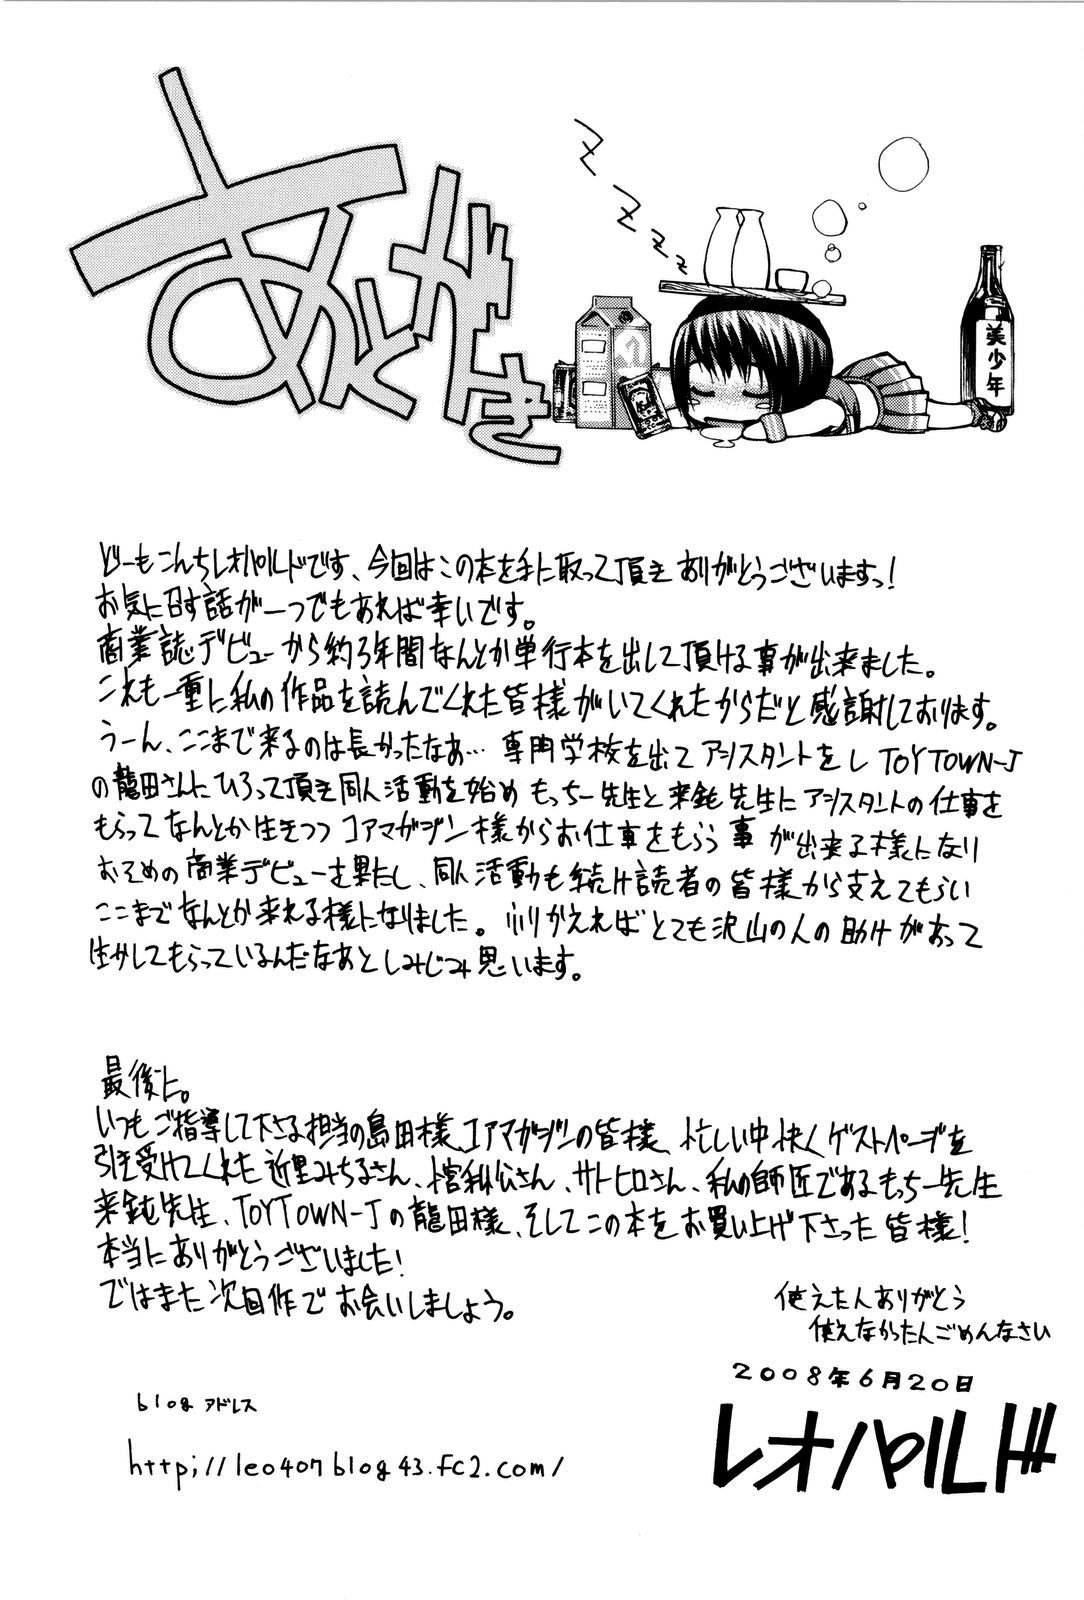 あとがき
美少年
どーもこんちレオパルドです、今回はこの本を手に取って頂きありがとうございますっ!
お気に召す話が一つでもあれば幸いです。
商業誌デビューから約3年間なんとか単行本を出して頂ける事が出来ました。
これも一重に私の作品を読んでくれた皆様がいてくれたからだと感謝しております。
うーん、ここまで来るのは長かったなあ… 専門学校を出てアシスタントをしTOYTOWN-J
の龍田さんにひろって頂き同人活動を始めもっちー先生と来鈍先生にアシスタントの仕事を
もらってなんとか生きつつコアマガジン様からお仕事をもらう事が出来る様になり
おそめの商業デビューを果たし、同人活動も続け読者の皆様から支えてもらい
ここまでなんとか来れる様になりました。ふりかえればとても沢山の人の助けがあって
生かしてもらっているんだなあとしみじみ思います。
最後に。
いつもご指導して下さる担当の島田様、コアマガジンの皆様、忙しい中快くゲストページを
引き受けてくれた近里みちるさん、宮利公さん、サトヒロさん、私の師匠であるもっちー先生
来鈍先生、TOYTOWN-Jの龍田様、そしてこの本をお買い上げ下さった皆様!
本当にありがとうございました!
ではまた次回作でお会いしましょう。
使えた人ありがとう
使えなかったんごめんなさい
2008年6月20日
レオパルド
blog アドレス
http;//leo407blog43.fc2.com/